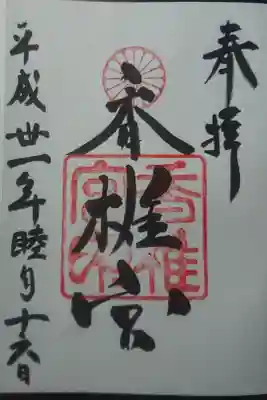 奉拝
香椎宮
平成卅一年睦月十六日
香椎宮印